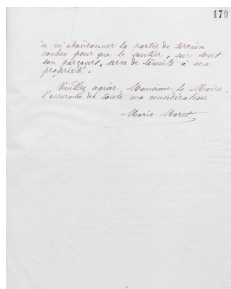 479
à m'abandonner la partie de terrain
voulue pour que le sentier, sur tout
son parcours, serve de limite à ma
propriété.
Veuillez agréer Monsieur le Maire
l'assurance de toute ma considération
Marie Moret